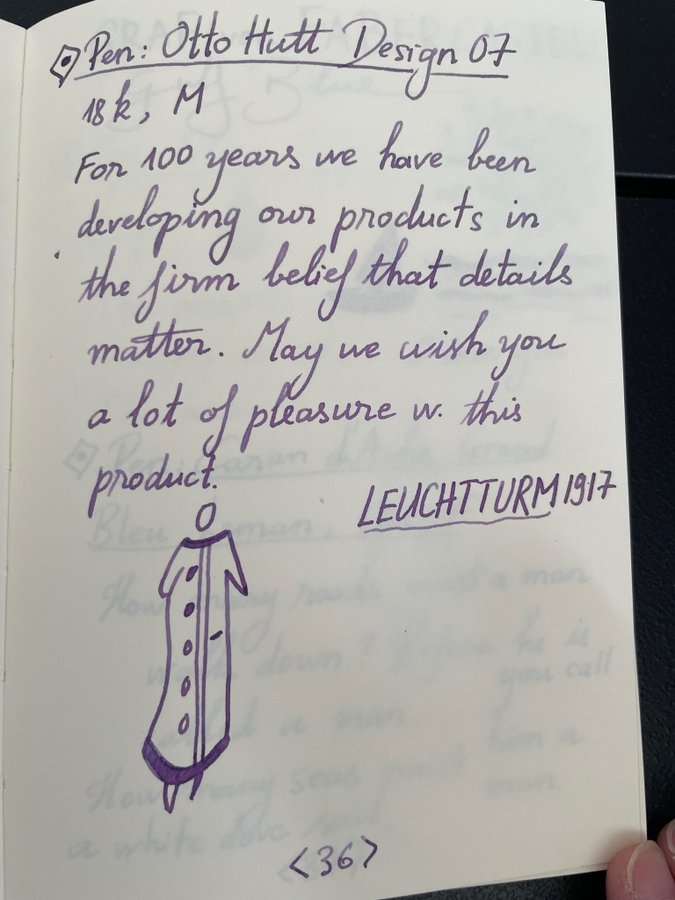 Pen: Otto Hutt Design 07
18k, M
For 100 years we have been
developing our products in
the firm belief that details
matter. May we wish you
a lot of pleasure w. this
product.
LEUCHTTURM1917
<36>